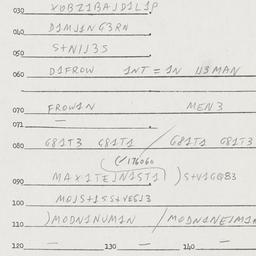 030 XOBZ1BAJD1L1P
040 D1MJ1NG3RN
050 S+N1J3S
060 D1FROW 1NT = 1N 1J3MAN
070 FROW1N MEN3
071 —
080 G81T3 G81T1 / G81T1 G81T3
(✓176060
090 MAX1TEJN1ST1 )S+V1GQB3
100 MOJS+1SS+VEGJ3
110 )MODN1NUM1N /MODN1NEJM1N
120 — 130 — 140 —